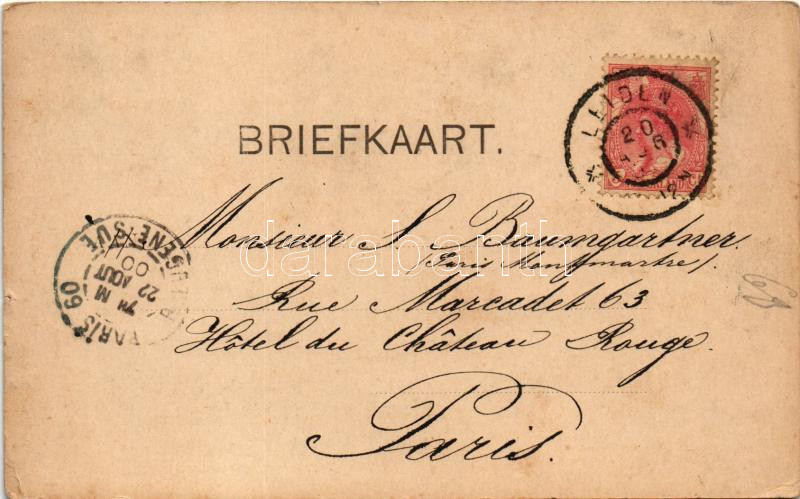 BRIEFKAART.
LEIDEN
20
Monsieur S. Baumgartner.
(Paris Montmartre).
Rue Marcadet 63
Hôtel du Château Rouge.
Paris.
PARIS 60
7H M
22 AOUT
00
EUGENE SUE
63
darabanth